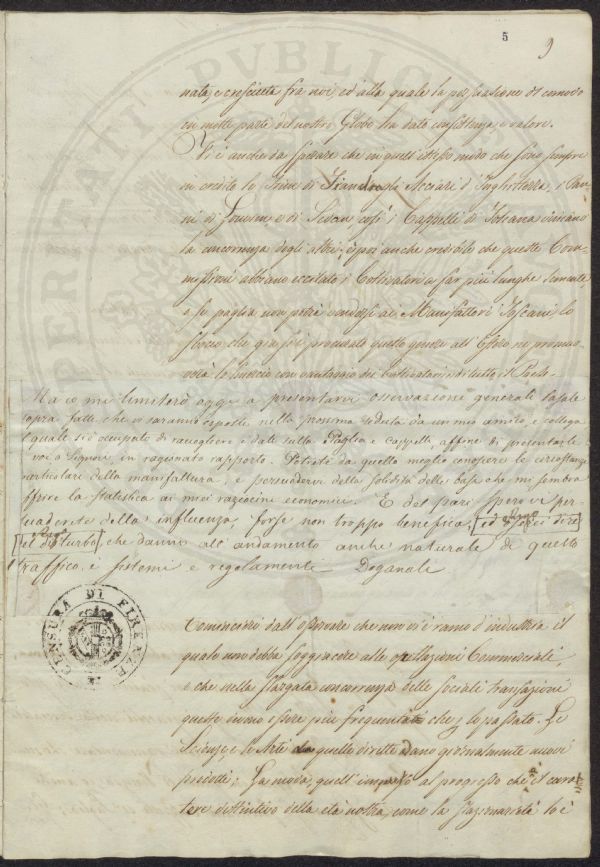 5
9
nata, e cresciuta fra noi, ed alla quale la persuasione di comodo
in molte parte del nostro Globo ha dato consistenza, e valore.
Vi è anche da sperare che in quell'istesso modo che sono sempre
in credito le Trine di Fiandra, gli Acciari d'Inghilterra, i Pan-
ni di Louvier, e di Sedan, così i Cappelli di Toscana
la concorrenza degli altri: è poi anche credibile che queste Com-
missioni abbiano eccitato i Coltivatori a far più lunghe semente
e se paglia non potrà vendersi ai Manifattori Toscani lo
sfocio che già si è procurato questo genere all'Estero ne promuo-
verà lo smercio con vantaggio dei Coltivatori e di tutto il Paese.
Ma io mi limiterò oggi a presentarvi osservazione generali basate
sopra fatti che vi saranno esposti nella prossima seduta da un mio amico, e collega
il quale si è occupato di raccogliere i dati sulla Paglia, e cappelli affine di presentarle
a voi o Signori in ragionato rapporto. Potrete da quello meglio conoscere le circostanze
particolari della manifattura, e persuadervi della solidità delle basi che mi sembra
offrire la statistica ai miei raziocini economici. E del pari spero vi per-
suaderete della influenza, forse non troppo benefica, ed
disturbo, che danno all'andamento anche naturale di questo
traffico, i sistemi e regolamenti Doganali
CENSURA DI FIRENZE
Comincierò dall'osservare che non vi è ramo d'industria il
quale non debba soggiacere alle oscillazioni Commerciali,
e che nella slargata concorrenza delle sociali transazioni
queste devono essere più frequentate che per lo passato. Le
Scienze, e le Arti da quelle dirette danno giornalmente nuovi
prodotti: La moda, quell'impulso al progresso che è il carat-
tere distintivo della età nostra, come la stazionarietà lo è